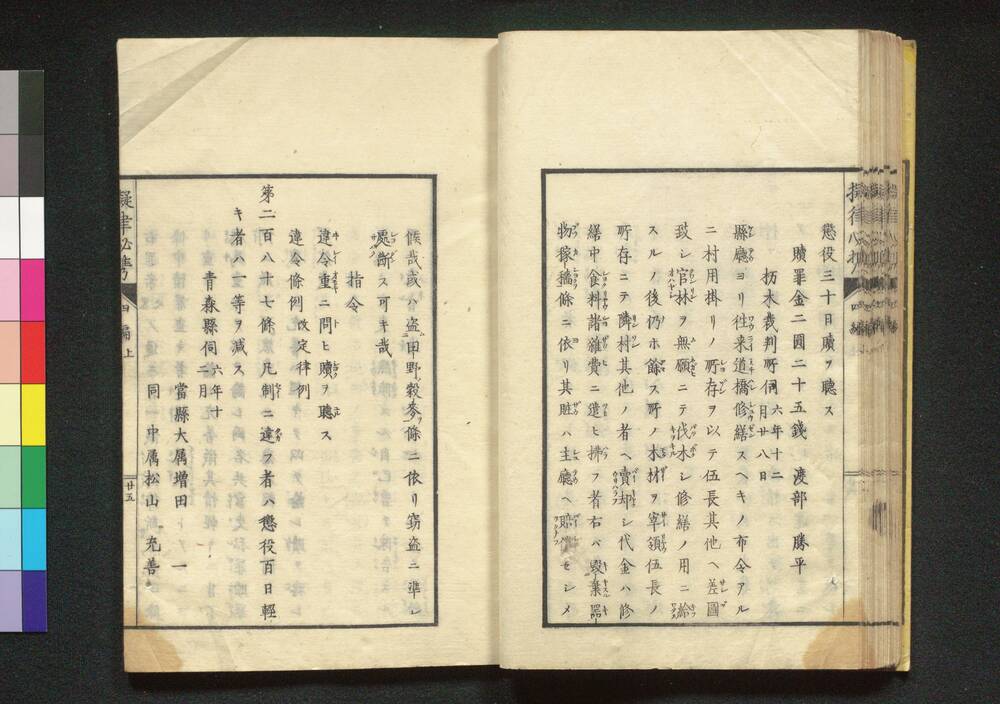 懲役三十日贖ヲ聽ス
贖罪金二圓二十五錢　渡部勝平
栃木裁判所伺 六年十二月廿八日
縣廳ヨリ往来道橋修繕スヘキノ布令アル
ニ村用掛リノ所存ヲ以テ伍長其他ヘ差圖
致シ官林ヲ無願ニテ伐木シ修繕ノ用ニ給
スルノ後仍ホ餘ス所ノ木材ヲ宰領伍長ノ
所存ニテ隣村其他ノ者ヘ賣却シ代金ハ修
繕中食料諸雜費ニ遣ヒ拂フ者右ハ毀棄器
物稼穡條ニ依リ其賍ハ主廳ヘ賠償セシメ
候哉或ハ盗田野穀麥條ニ依リ竊盗ニ準シ
處斷ス可キ哉
指令
違令重ニ問ヒ贖ヲ聽ス
違令條例 改定律例
第二百八十七條凡制ニ違フ者ハ懲役百日輕
キ者ハ一等ヲ減ス
青森縣伺 六年十二月
當縣大属増田　一
同　中属松山　充善
擬律必携
四編上
廿五